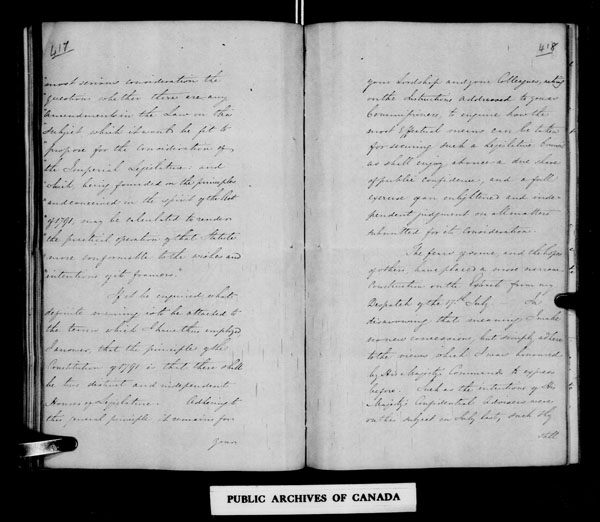 417
"most serious consideration the
"question whether there are any
"amendments in the Law on the
"subject which it would be fit to
"propose for the consideration of
the Imperial Legislature: and
"which being founded on the principles
"and conceived in the spirit of the Act
"of 1791, may be calculated to render
the practical operation of that Statute
"more conformable to the wishes and
"intentions of its framers."
If it be enquired what
definite meaning is to be attached to
the terms which I have thus employed
I answer, that the principle of the
Constitution of 1791 is that there shall
be two distinct and independent
Houses of Legislature. Adhering to
this general principle it remains for
your
418
your Lordship and your Colleagues, acting
on the Instructions addressed to you as
Commissioners, to enquire how the
most effectual means can be taken
for securing such a Legislative Council
as shall enjoy a due share
of public confidence, and a full
exercise of an enlightened and inde-
pendent judgment on all matters
submitted for its consideration.
The fears of some, and the hopes
of others, have placed a most narrow
Construction on the Extract from my
Despatch of the 17th July. In
disavowing that meaning, I make
no new concession, but simply adhere
to the views which I was honoured
by His Majesty's Commands to express
before. Such as the intentions of His
Majesty's Confidential Advisers were
on this subject in July last, such they
still
PUBLIC ARCHIVES OF CANADA